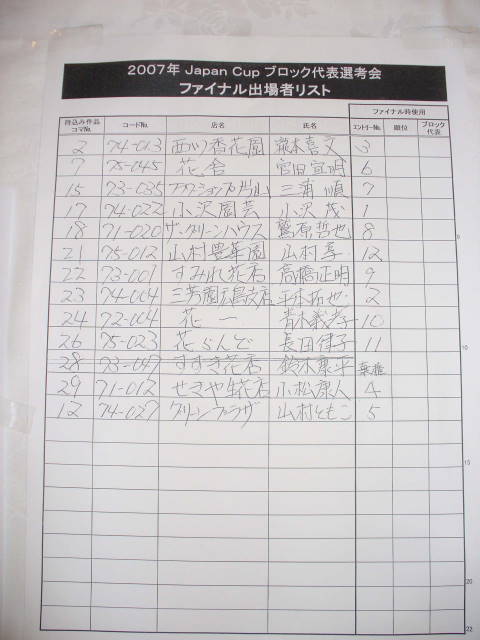 2007年 Japan Cup ブロック代表選考会
ファイナル出場者リスト
ファイナル時使用
持込み作品コマNo. コードNo. 店名 氏名 エントリーNo. 順位 ブロック代表
2 74-013 西川香花園 瀧本喜文 3
7 75-045 花舎 宮田宜明 6
15 73-035 片山 三浦順 7
17 74-022 小沢園芸 小沢茂 1
18 71-020 ザ・グリーンハウス 鷲原哲也 8
21 75-012 山村豊華園 山村享 12
22 73-001 すみれ花店 高橋正明 9
23 74-004 三芳園広島支店 平本拓也 2
24 72-004 花一 青木義孝 10
26 75-023 花らんど 長田律子 11
28 73-047 すずき花店 鈴木康平 棄権
29 71-012 せきや生花店 小松康人 4
12 74-027 グリーンプラザ 山村ともこ 5
5
10
15
20
22